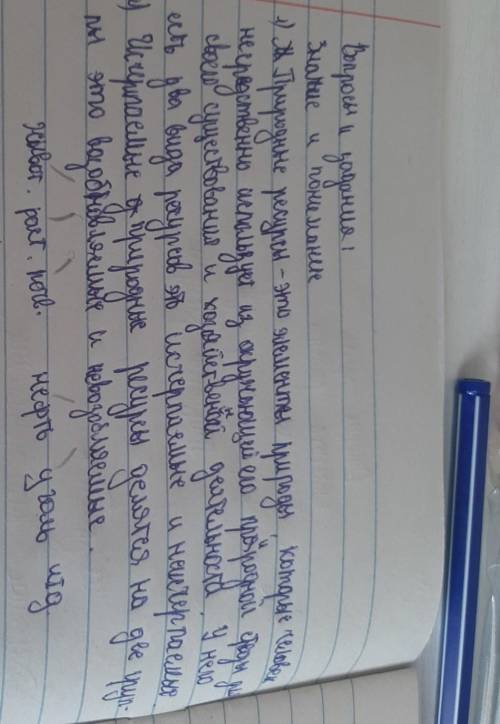 Вопросы и задания!
Знание и понимание
1) Природные ресурсы - это элементы природы, которые человек
непосредственно использует из окружающей его природной среды для
своего существования и хозяйственной деятельности, у него
есть два вида ресурсов это исчерпаемые и неисчерпаемые.
Исчерпаемые природные ресурсы делятся на две груп-
пы это возобновляемые и невозобновляемые.
живот. раст. поч. нефть уголь итд